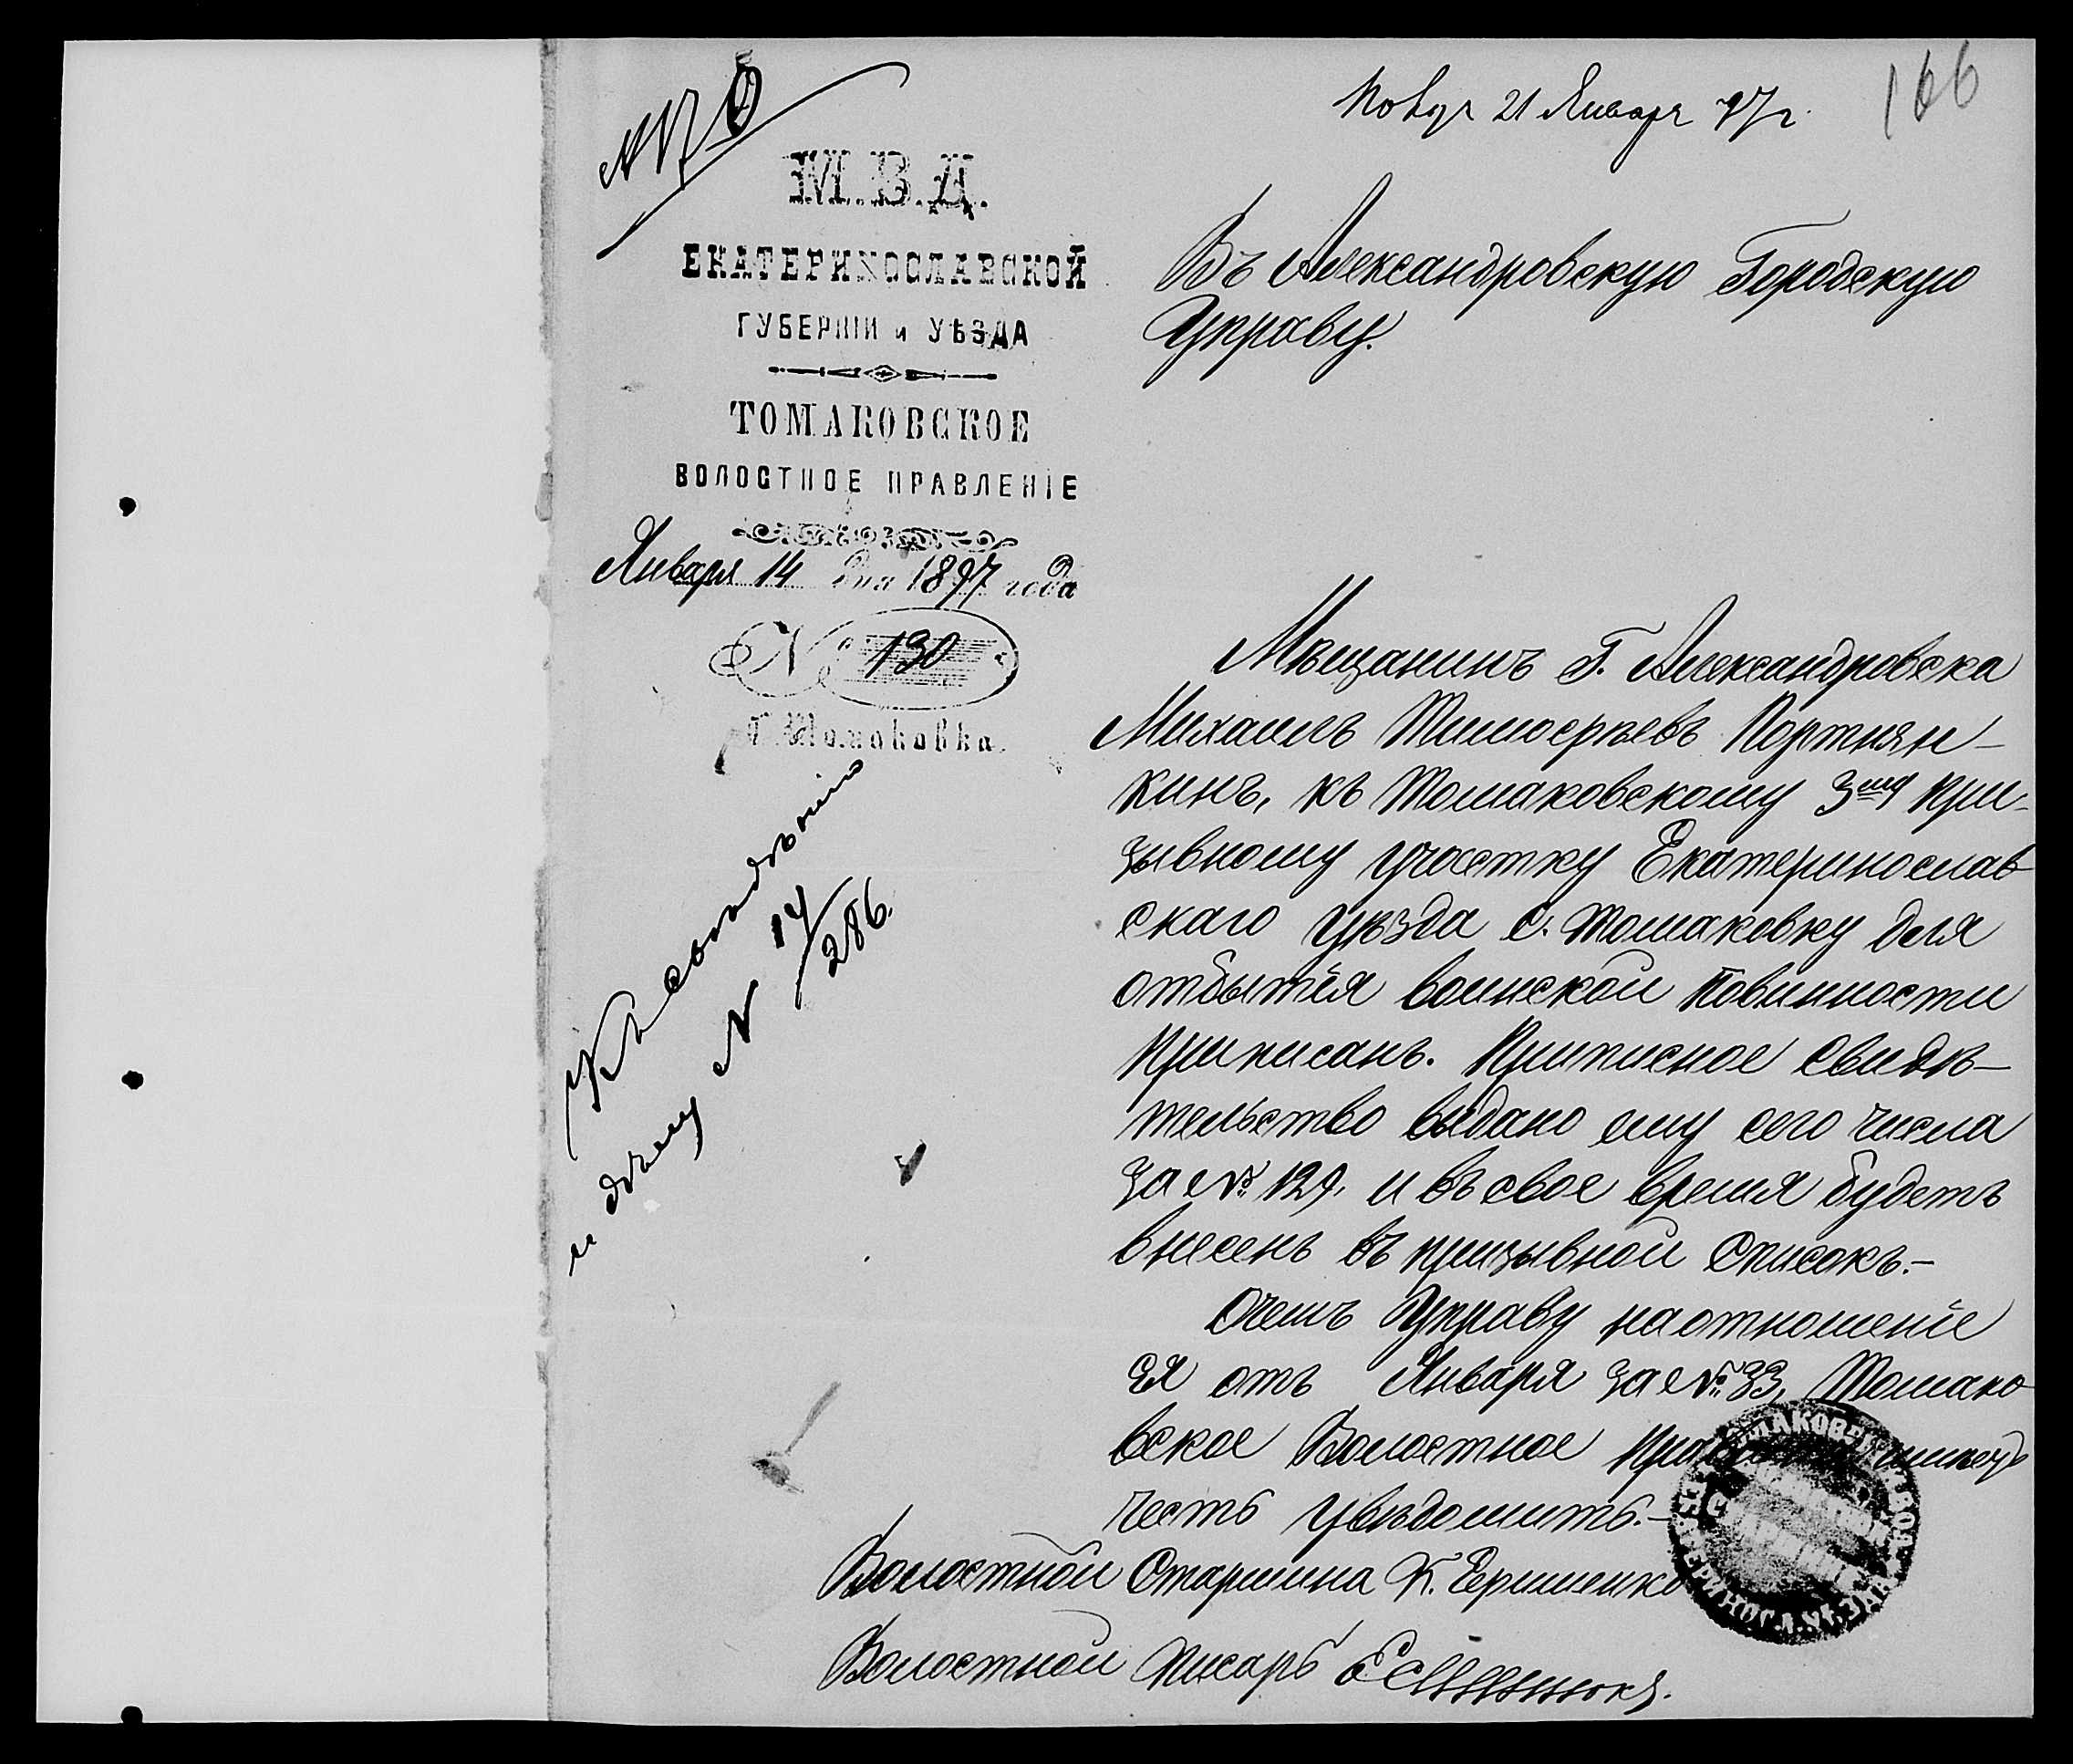 166
Получ 21 Января 97 г.
М.В.Д.
ЕКАТЕРИНОСЛАВСКОЙ
ГУБЕРНІИ и УѢЗДА
ТОМАКОВСКОЕ
ВОЛОСТНОЕ ПРАВЛЕНІЕ
Января 14 дня 1897 года
№ 130
С. Томаковка.
Къ свѣдѣнію
и дѣлу № 14/286.
Въ Александровскую Городскую
Управу.
Мѣщанинъ Г. Александровска
Михаилъ Тимоѳеевъ Портнян-
кинъ, къ Томаковскому 3му при-
зывному участку Екатеринослав
скаго уѣзда с. Томаковку для
отбытія воинской повинности
приписанъ. Приписное свидѣ-
тельство выдано ему сего числа
за № 129, и въ свое время будетъ
внесенъ въ призывной списокъ.-
О чемъ Управу на отношеніе
ея отъ Января за № 33, Томако
вское Волостное Правленіе имѣетъ
честь увѣдомить.-
Волостной Старшина К. Еришенко
Волостной Писарь